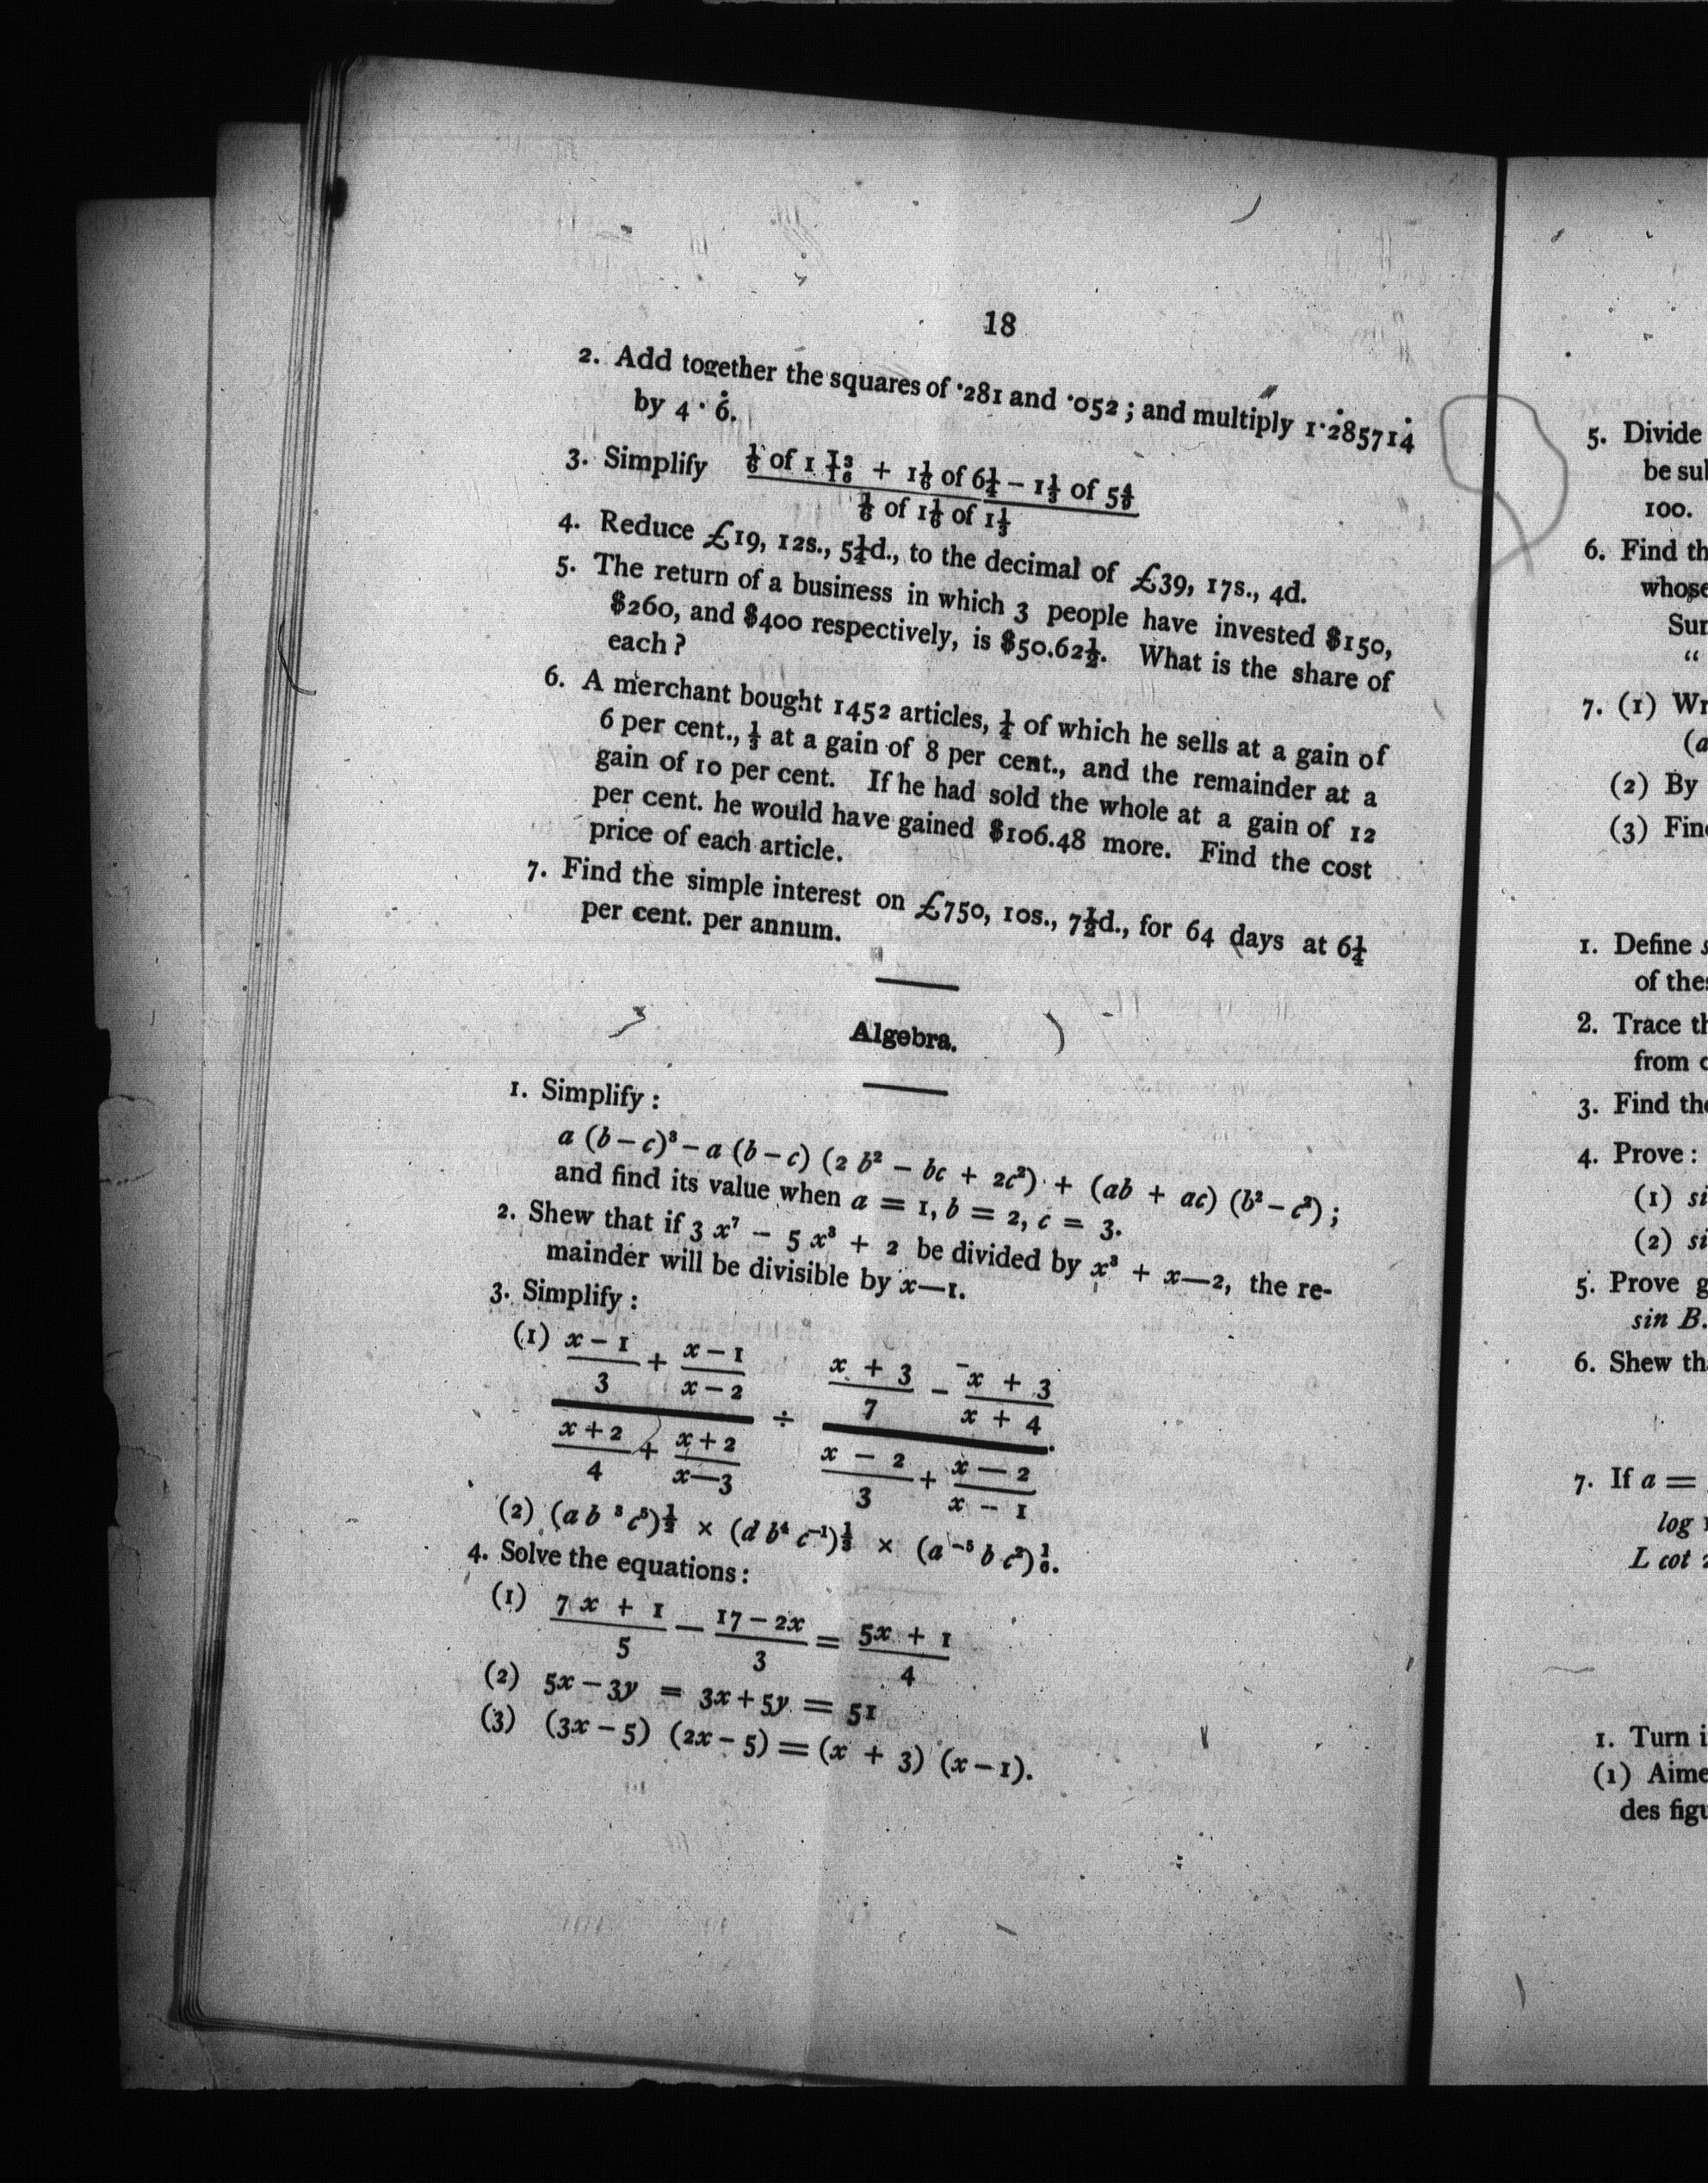 18
2. Add together the squares of ·281 and ·052 ; and multiply 1·2̇85714̇
by 4 · 6̇.
3. Simplify
⅙ of 1 13/16 + 1⅙ of 6¼ – 1⅓ of 5 4/9
⅙ of 1⅙ of 1⅓
4. Reduce £19, 12s., 5¼d., to the decimal of £39, 17s., 4d.
5. The return of a business in which 3 people have invested $150,
$260, and $400 respectively, is $50.62½. What is the share of
each ?
6. A merchant bought 1452 articles, ¼ of which he sells at a gain of
6 per cent., ⅓ at a gain of 8 per cent., and the remainder at a
gain of 10 per cent. If he had sold the whole at a gain of 12
per cent. he would have gained $106.48 more. Find the cost
price of each article.
7. Find the simple interest on £750, 10s., 7½d., for 64 days at 6¼
per cent. per annum.
Algebra.
1. Simplify :
a (b – c)³ – a (b – c) (2 b² – bc + 2c²) + (ab + ac) (b² – c²) ;
and find its value when a = 1, b = 2, c = 3.
2. Shew that if 3 x⁷ – 5 x³ + 2 be divided by x³ + x—2, the re-
mainder will be divisible by x—1.
3. Simplify :
(1) x – 1 + x – 1 x + 3 – x + 3
3 x – 2 ÷ 7 x + 4 .
x + 2 + x + 2 x – 2 + x — 2
4 x—3 3 x – 1
(2) (a b ³ c⁵)½ × (d b⁴ c⁻¹)⅓ × (a ⁻⁵ b c²)⅙.
4. Solve the equations :
(1) 7 x + 1 — 17 – 2x = 5x + 1
5 3 4
(2) 5x – 3y = 3x + 5y = 51
(3) (3x – 5) (2x – 5) = (x + 3) (x – 1).
5. Divide
100.
6. Find
whose
“
7. (1)
(2) By
(3)
1. Define
of
2. Trace
from
3. Find
4. Prove :
(1)
(2)
5. Prove
sin B.
6. Shew
7. If a =
log
L cot
1. Turn
(1)
des